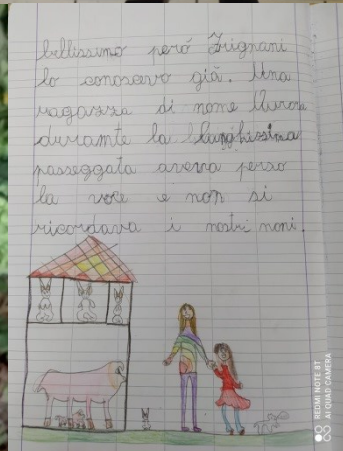 bellissimo però Frignani
lo conoscevo già. Una
ragazza di nome Aurora
durante la lunghissima
passeggata aveva perso
la voce e non si
ricordava i nostri nomi.
REDMI NOTE 8T
AI QUAD CAMERA